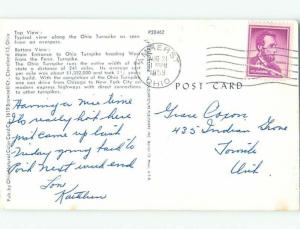 Top View -
Typical view along the Ohio Turnpike as seen
from an overpass.
Bottom View -
Main Entrance to Ohio Turnpike Heading West
from the Penn. Turnpike.
The Ohio Turnpike runs the entire width of the
state a distance of 241 miles. It was built at
a cost of about $1,352,000 and took
With the completion of the Ohio Turnpike
one can drive from Chicago to New York City on
modern express highways with direct connections
to other turnpikes.
P22462
AMHERST
AUG 31
1959
OHIO
POST CARD
Having a nice time
Its really hot here
just came up last
Friday going back to
next week end
Love
Kathleen
Grace Coxon
425 Indian Grove
Toronto
Ont.